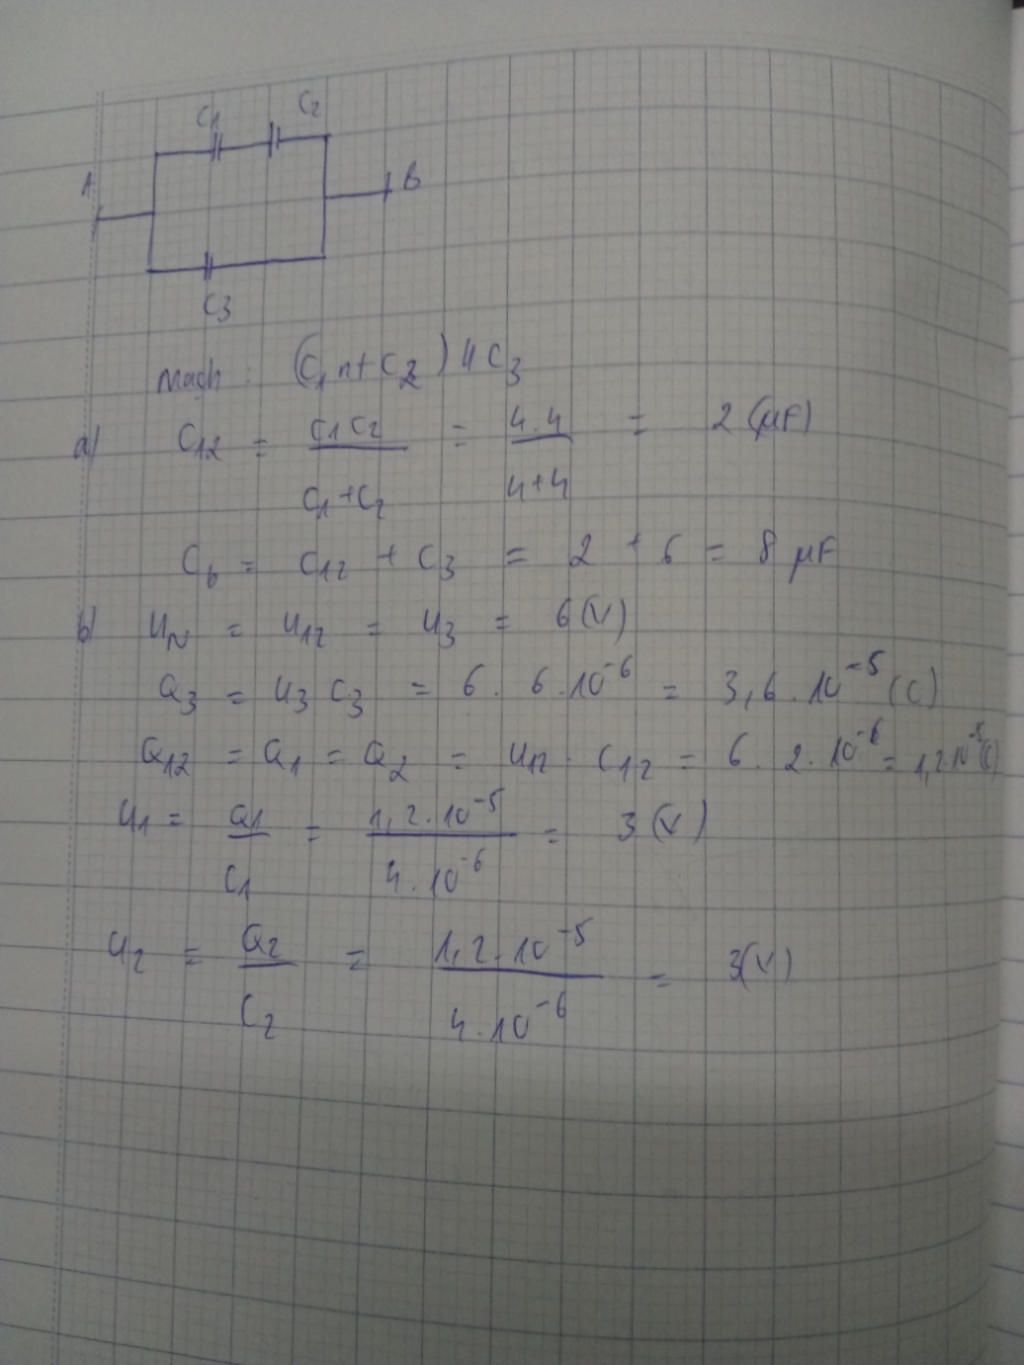 C1 C2
A B
C3
Mạch : (C1 nt C2) // C3
a) C12 = C1C2 / C1+C2 = 4.4 / 4+4 = 2 (μF)
Cb = C12 + C3 = 2 + 6 = 8 μF
b) UN = U12 = U3 = 6(V)
Q3 = U3 C3 = 6. 6.10^-6 = 3,6.10^-5 (C)
Q12 = Q1 = Q2 = U12 . C12 = 6. 2.10^-6 = 1,2.10^-5(C)
U1 = Q1 / C1 = 1,2.10^-5 / 4.10^-6 = 3 (V)
U2 = Q2 / C2 = 1,2.10^-5 / 4.10^-6 = 3(V)